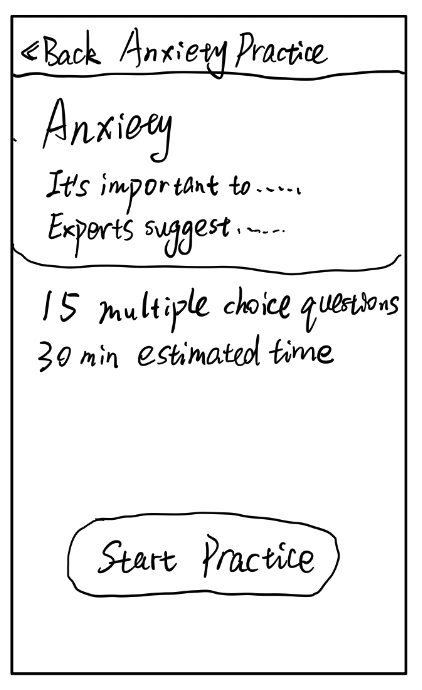 ≪Back Anxiety Practice
Anxiety
It's important to.....
Experts suggest.....
15 multiple choice questions
30 min estimated time
Start Practice